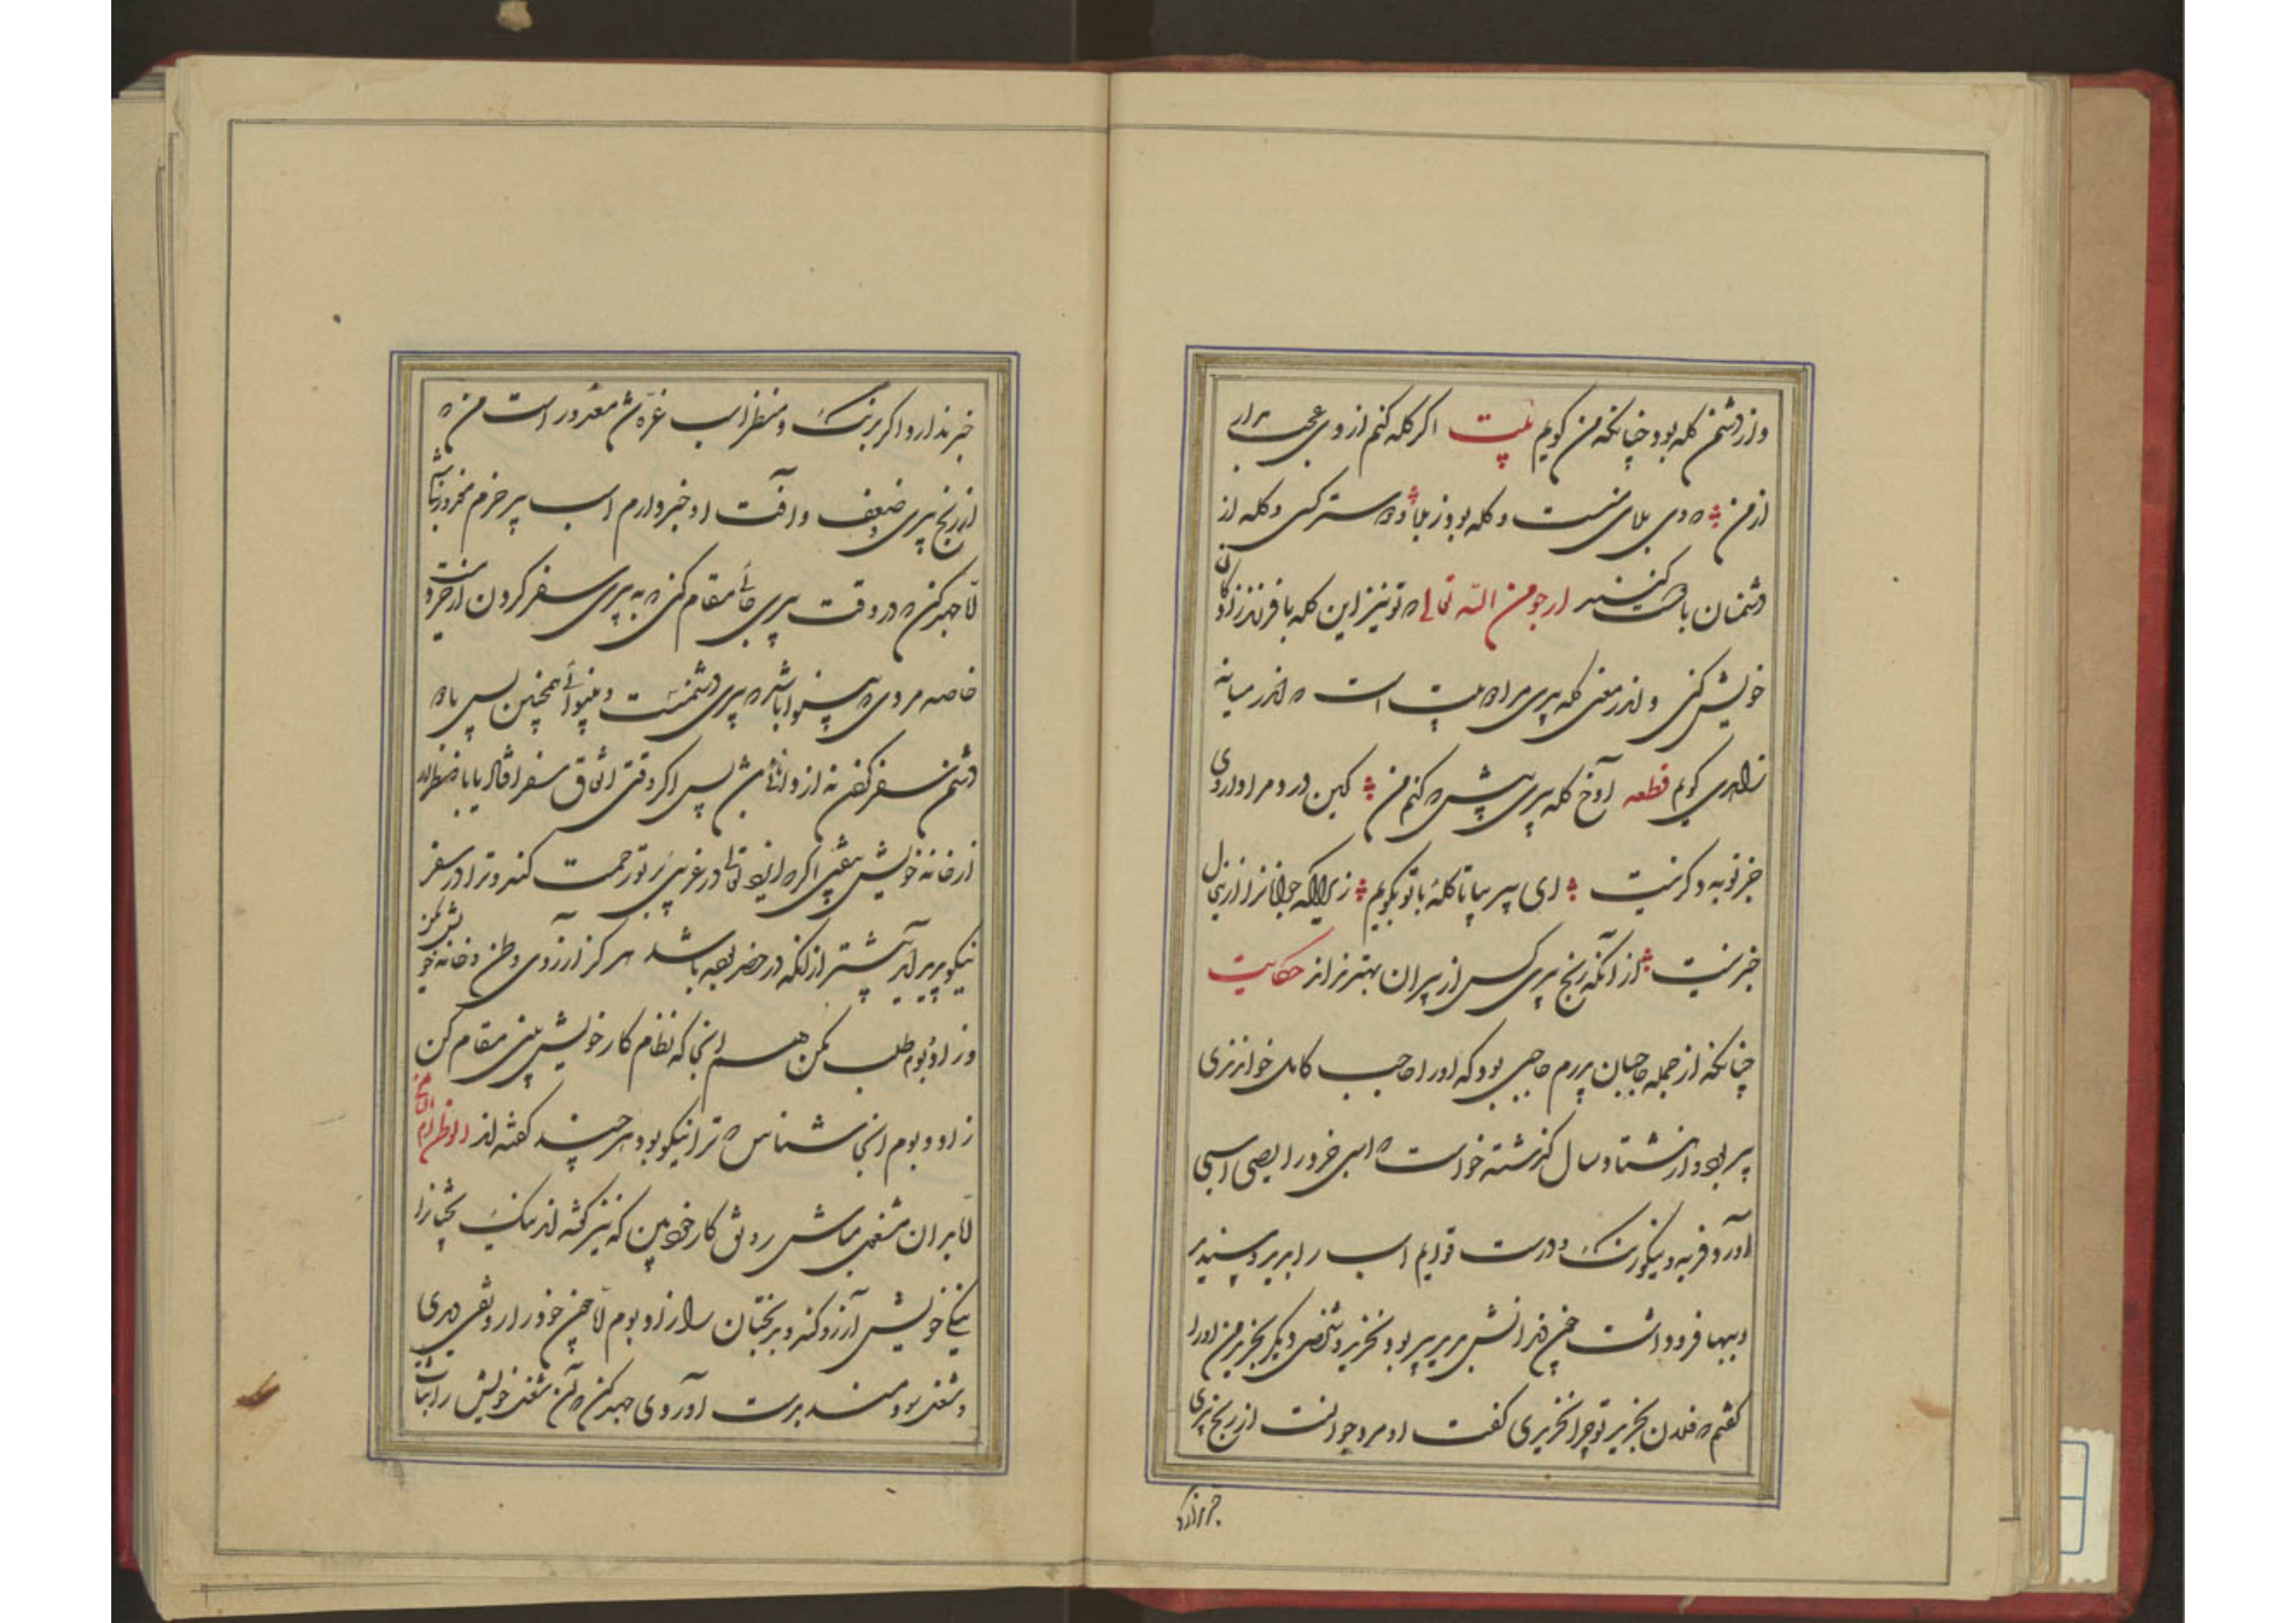 و از دشمن گله بود چنانکه من گویم بیت اگر گله کنم از وی عجب مدار
از من که وی بلای منست و گله بود ز بلا و دوستر کس و گله از
دشمنان با دوست کنند ارجو من الله تعالی که تو نیز این گله با فرزندزادگان
خویش کنی و اندر معنی گله پیری مرا دو بیت است که اندر میانه
زاهدی گویم قطعه آوخ گله پیری پیش که کنم من کین درد مرا داروی
جز توبه دگر نیست ای پیر بیا تا گله با تو بگویم زیراکه جوانانرا ازین حال
خبر نیست از آنکه رنج پیری کس از پیران بهتر نداند حکایت
چنانکه از جمله حاجبان پدرم حاجبی بود که او را حاجب کامل خواندندی
پیر بود و از هشتاد سال گذشته خواست که اسبی خرد رایض اسبی
آورد فربه و نیکو رنگ و درست قوایم اسب را بدید و پسندید
و بها فرو داشت چون دندانش بدید پیر بود نخرید و شخصی دیگر بخرید من او را
گفتم که فلان بخرید تو چرا نخریدی گفت او مرد جوانست از رنج پیری
خبر ندارد
خبر ندارد و اگر برنگ و منظر اسب غره شد معذور است من که
از رنج پیری و ضعف و آفت او خبر دارم اسب پیر خرم معذور نباشم
الا جهد کن که در وقت پیری جائی مقام کنی که به پیری سفر کردن از خرد نیست
خاصه مردی که بینوا باشد که پیری دشمنست و بینوائی همچنین پس با دو
دشمن سفر کردن نه از دانائی باشد پس اگر وقتی اتفاق سفر افتد یا باضطرار
از خانه خویش بیفتی اگر که ایزد تعالی در غریبی بر تو رحمت کند و ترا در سفر
نیکو پدید آید بیشتر از آنکه در حضر بوده باشد هرگز آرزوی وطن و خانه خویش مکن
و زاد و بوم طلب مکن هم آنجا که نظام کار خویش بینی مقام کن
زاد و بوم آنجا شناس که ترا نیکو بود هر چند گفته اند الوطن ام الثانی
اما بدان مشغول مباش رونق کار خود بین که نیز گفته اند نیک بختانرا
نیکی خویش آرزو کند و بدبختان را زاد و بوم اما چون خود را رونقی دیدی
و شغلی سودمند بدست آوردی جهد کن که آن شغل خویش را ثبات